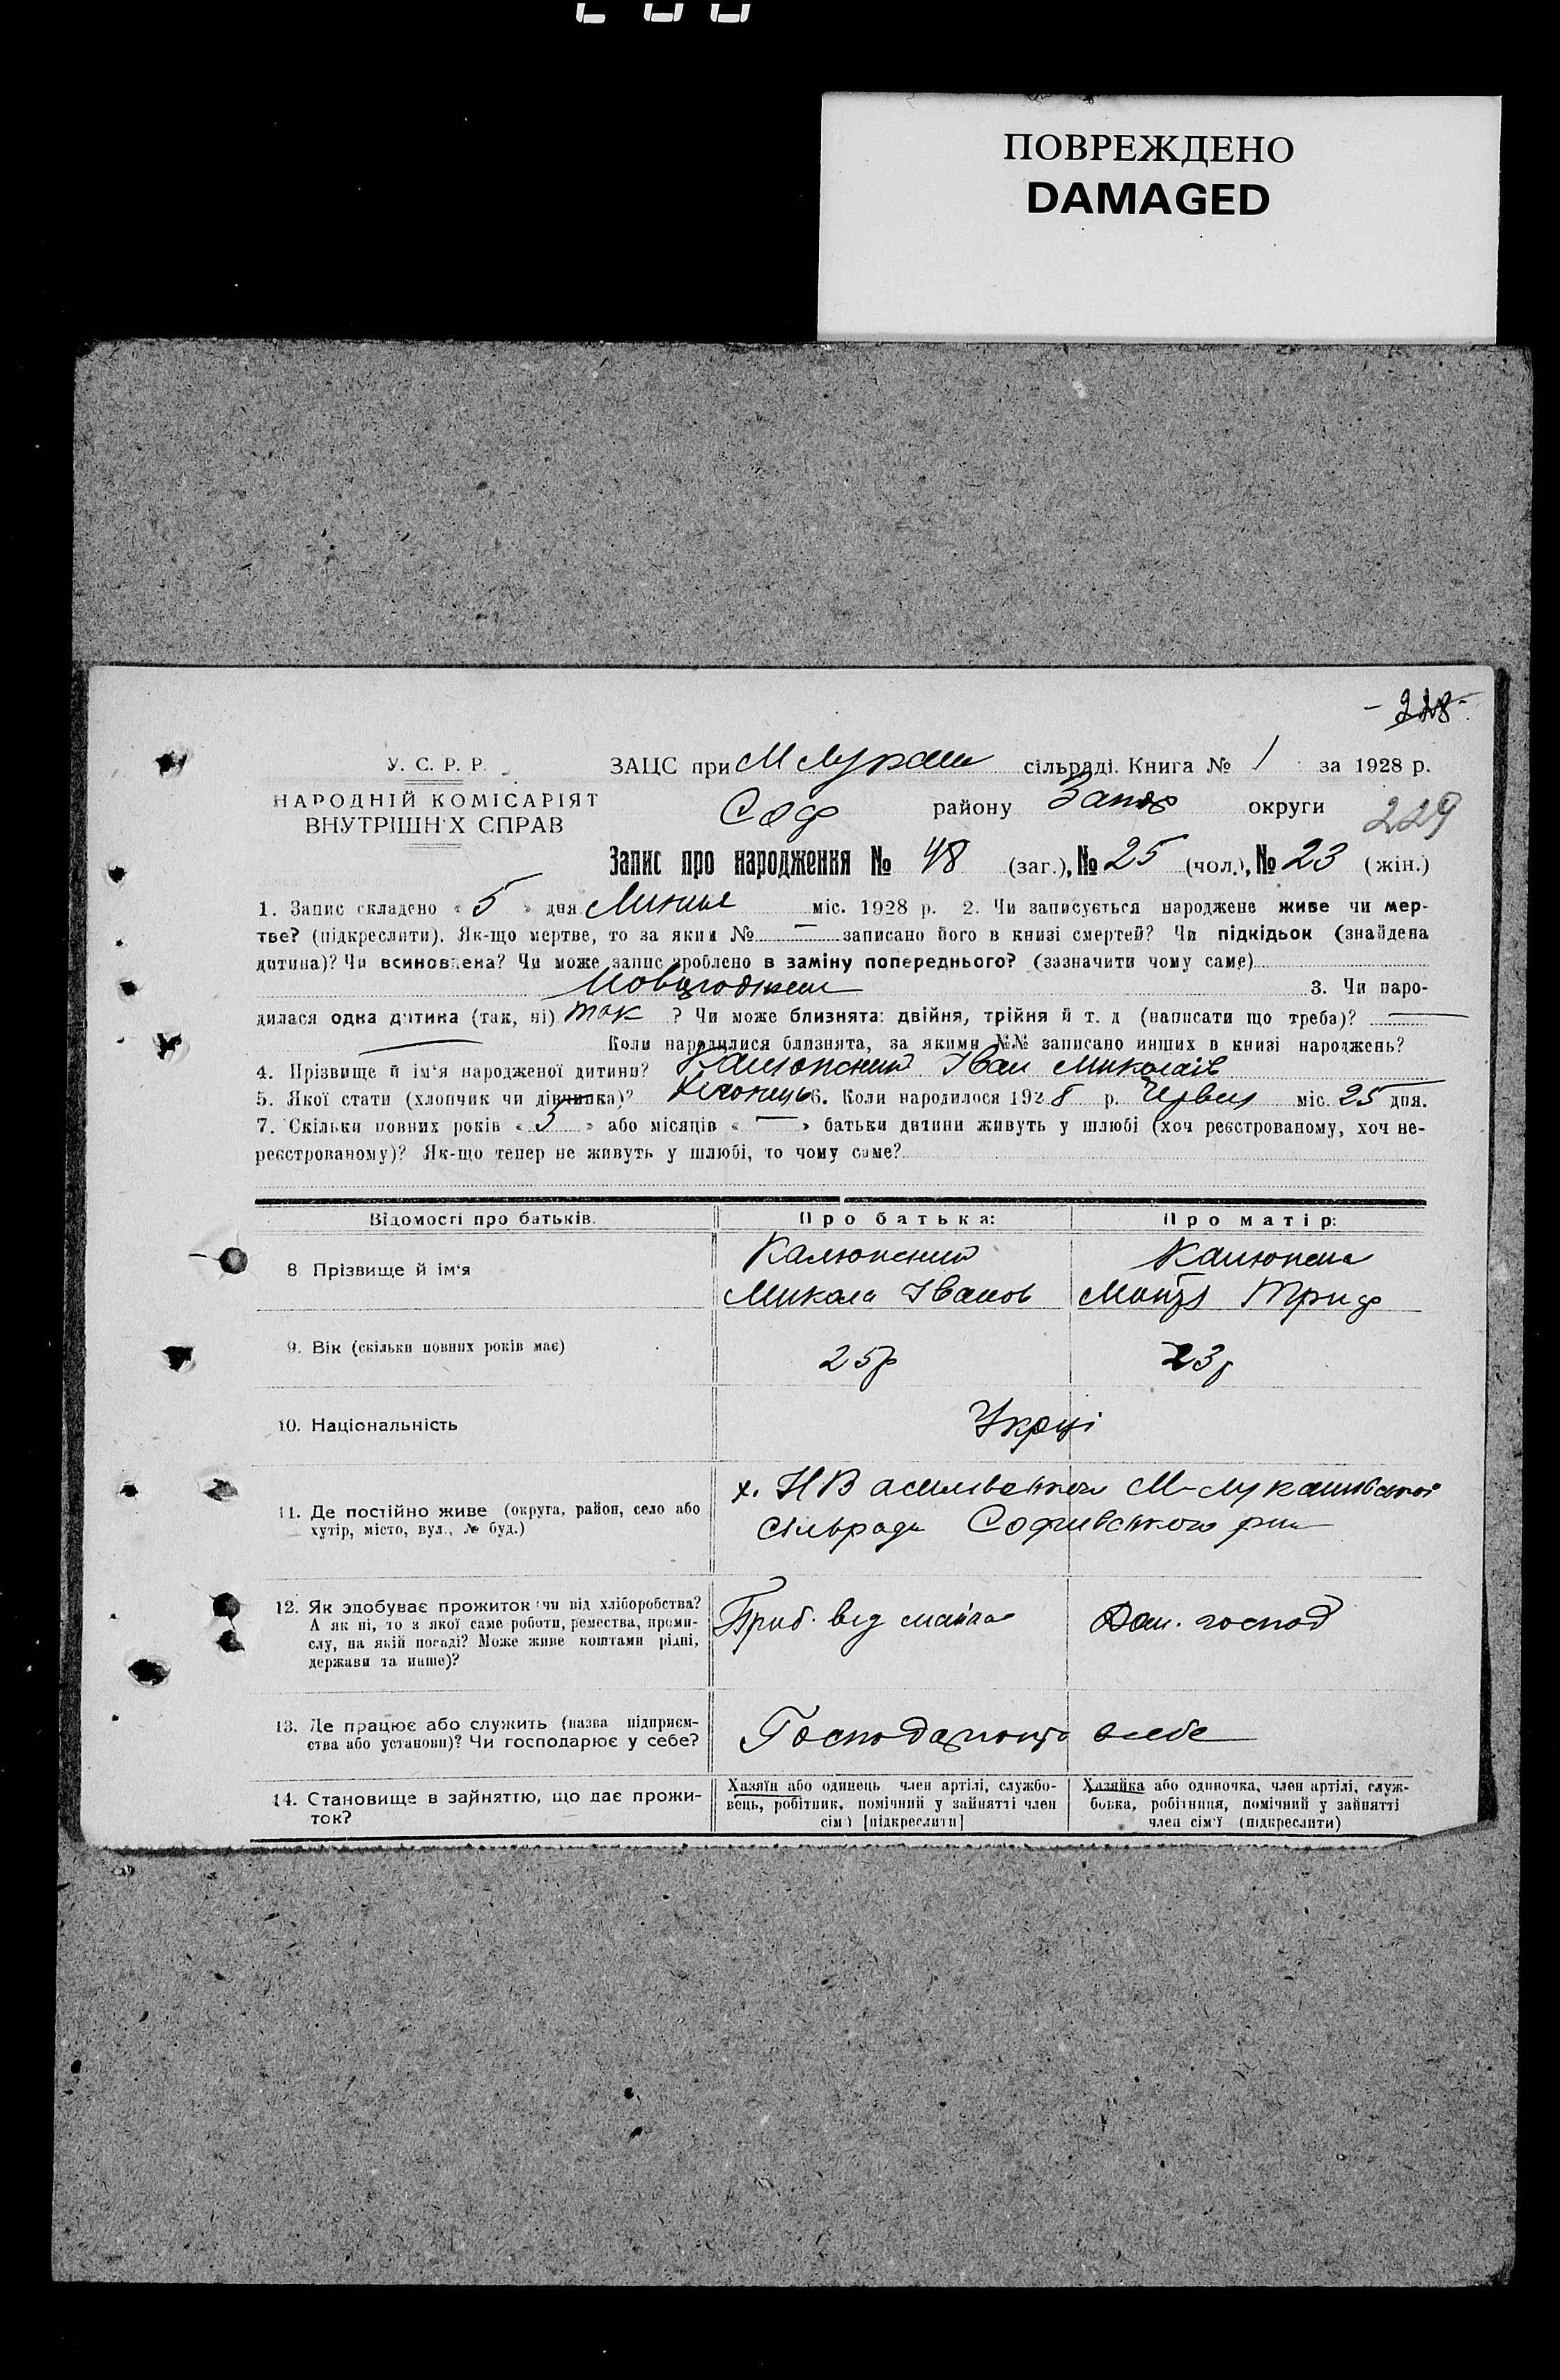 ПОВРЕЖДЕНО
DAMAGED
- 228 -
У. С. Р. Р.
НАРОДНІЙ КОМІСАРІЯТ
ВНУТРІШН'Х СПРАВ
ЗАЦС при сільраді. Книга № 1 за 1928 р.
Соф району Запор округи 229
Запис про народження № 48 (заг.), № 25 (чол.), № 23 (жін.)
1. Запис складено « 5 » дня Липня міс. 1928 р. 2. Чи записується народжене живе чи мер-
тве? (підкреслити). Як-що мертве, то за яким № — записано його в книзі смертей? Чи підкідьок (знайдена
дитина)? Чи всиновлена? Чи може запис зроблено в заміну попереднього? (зазначити чому саме)
3. Чи наро-
дилася одна дитина (так, ні) так ? Чи може близнята: двійня, трійня й т. д (написати що треба)? —
— Коли народилися близнята, за якими №№ записано инших в книзі народжень?
4. Прізвище й ім'я народженої дитини? Калюпский Іван Миколаів
5. Якої стати (хлопчик чи дівчинка)? 6. Коли народилося 1928 р. Червня міс. 25 дня.
7. Скільки повних років « 3 » або місяців « — » батьки дитини живуть у шлюбі (хоч реєстрованому, хоч не-
реєстрованому)? Як-що тепер не живуть у шлюбі, то чому саме?
Відомості про батьків. Про батька: Про матір:
8 Прізвище й ім'я
Калюпский
Микола Іванов
9. Вік (скільки повних років має) 25р 23р
10. Національність Укрці
11. Де постійно живе (округа, район, село або
хутір, місто, вул., № буд.)
х. Н Васильвської М-Лукашівської
Сільради Софиівського рну
12. Як здобуває прожиток: чи від хліборобства?
А як ні, то з якої саме роботи, ремества, проми-
слу, на якій посаді? Може живе коштами рідні,
держави та инше)?
Приб. від
Дом. господ
13. Де працює або служить (назва підприєм-
ства або установи)? Чи господарює у себе?
Господарюють в себе
14. Становище в зайняттю, що дає прожи-
ток?
Хазяїн або одинець член артілі, службо-
вець, робітник, помічний у зайнятті член
сім'ї [підкреслити]
Хазяйка або одиночка, член артілі, служ-
бовка, робітниця, помічний у зайнятті
член сім'ї (підкреслити)